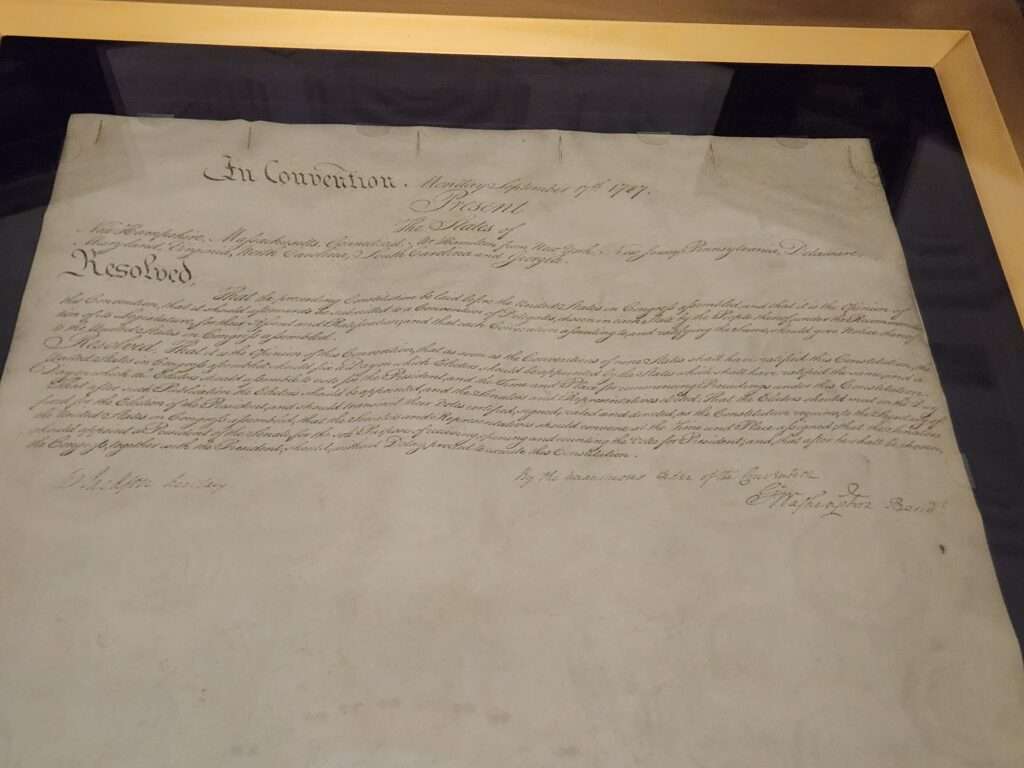 In Convention. Monday September 17th 1787.
Present
The States of
New Hampshire, Massachusetts, Connecticut, Mr. Hamilton from New York, New Jersey, Pennsylvania, Delaware,
Maryland, Virginia, North Carolina, South Carolina and Georgia.
Resolved,
That the preceeding Constitution be laid before the United States in Congress assembled, and that it is the Opinion of
this Convention, that it should afterwards be submitted to a Convention of Delegates, chosen in each State by the People thereof, under the Recommenda-
tion of its Legislature, for their Assent and Ratification; and that each Convention assenting to, and ratifying the Same, should give Notice thereof
to the United States in Congress assembled.
Resolved, That it is the Opinion of this Convention, that as soon as the Conventions of nine States shall have ratified this Constitution, the
United States in Congress assembled should fix a Day on which Electors should be appointed by the States which shall have ratified the same, and a
Day on which the Electors should assemble to vote for the President, and the Time and Place for commencing Proceedings under this Constitution.
That after such Publication the Electors should be appointed, and the Senators and Representatives elected: That the Electors should meet on the Day
fixed for the Election of the President, and should transmit their Votes certified, signed, sealed and directed, as the Constitution requires, to the Secretary of
the United States in Congress assembled, that the Senators and Representatives should convene at the Time and Place assigned; that the Senators
should appoint a President of the Senate, for the sole Purpose of receiving, opening and counting the Votes for President; and, that after he shall be chosen,
the Congress, together with the President, should, without Delay, proceed to execute this Constitution.
By the unanimous Order of the Convention
W. Jackson Secretary.
Go: Washington Presidt.